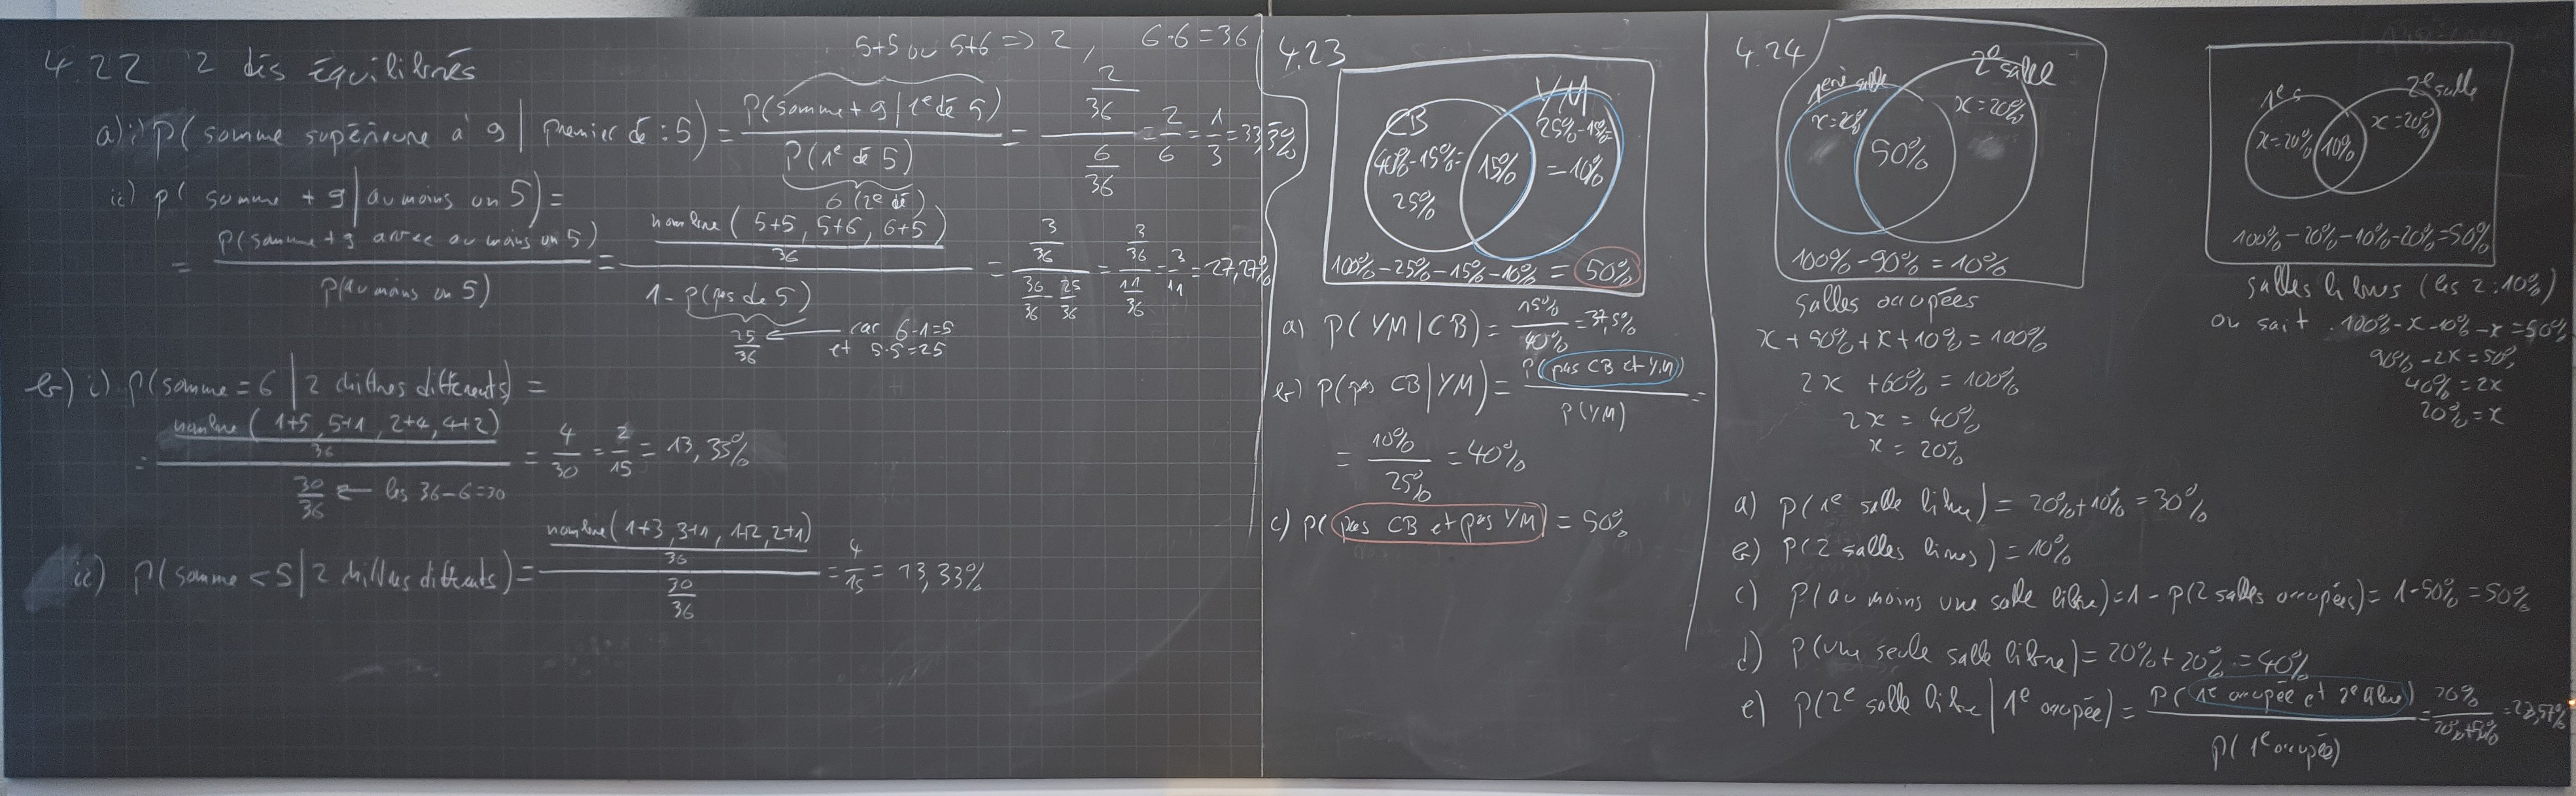 4.22 2 dés équilibrés
5+5 ou 5+6 => 2, 6·6=36
a) i) P(somme supérieure à 9 | premier dé : 5) = P(somme + 9 | 1e dé 5) / P(1e dé 5) = 2/36 / 6/36 = 2/6 = 1/3 = 33,3%
6 (2e dé)
ii) P(somme + 9 | au moins un 5) =
= P(somme + 9 avec au moins un 5) / P(au moins un 5) = nombre (5+5, 5+6, 6+5)/36 / 1 - P(pas de 5) = 3/36 / 36/36 - 25/36 = 3/36 / 11/36 = 3/11 = 27,27%
25/36 ← car 6-1=5
et 5·5=25
b) i) P(somme = 6 | 2 chiffres différents) =
= nombre (1+5, 5+1, 2+4, 4+2)/36 / 30/36 = 4/30 = 2/15 = 13,33%
← les 36-6=30
ii) P(somme < 5 | 2 chiffres différents) = nombre (1+3, 3+1, 1+2, 2+1)/36 / 30/36 = 4/15 = 13,33%
4.23
CB YM
40%-15%= 15% 25%-15%=
25% =10%
100%-25%-15%-10% = 50%
a) P(YM | CB) = 15%/40% = 37,5%
b) P(pas CB | YM) = P(pas CB et YM) / P(YM) =
= 10%/25% = 40%
c) P(pas CB et pas YM) = 50%
4.24
1ère salle 2e salle
x=20% 50% x=20%
100%-90% = 10%
salles occupées
x + 50% + x + 10% = 100%
2x + 60% = 100%
2x = 40%
x = 20%
1e s 2e salle
x=20% 10% x=20%
100%-20%-10%-20%=50%
salles libres (les 2 : 10%)
on sait 100%-x-10%-x=50%
90%-2x=50%
40%=2x
20%=x
a) P(1e salle libre) = 20%+10% = 30%
b) P(2 salles libres) = 10%
c) P(au moins une salle libre) = 1 - P(2 salles occupées) = 1-50% = 50%
d) P(une seule salle libre) = 20%+20% = 40%
e) P(2e salle libre | 1e occupée) = P(1e occupée et 2e libre) / P(1e occupée) = 20% / 20%+50% = 28,57%